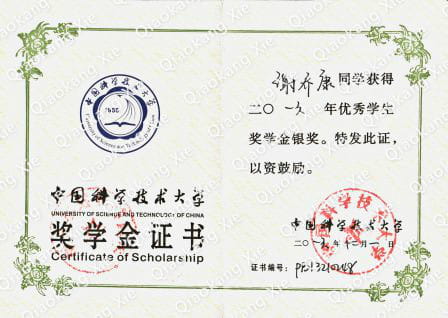 中国科学技术大学
1958
University of Science and Technology of China
中国科学技术大学
UNIVERSITY OF SCIENCE AND TECHNOLOGY OF CHINA
奖学金证书
Certificate of Scholarship
谢乔康同学获得
二〇一九年优秀学生
奖学金银奖。特发此证，
以资鼓励。
中国科学技术大学
二〇一九年十二月一日
证书编号:
Qiaokang Xie